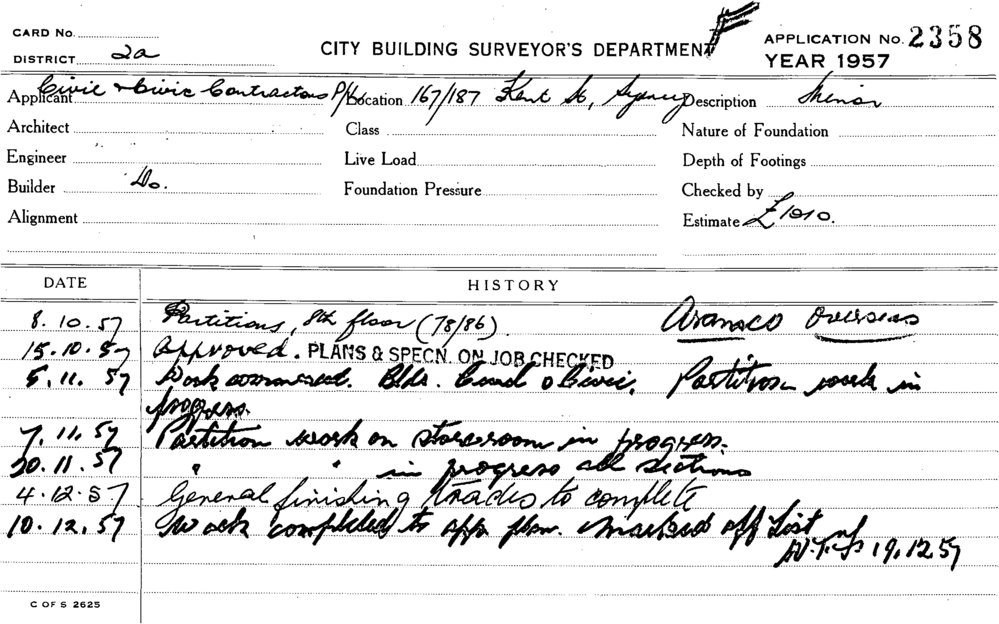 CARD No.
DISTRICT 2a
CITY BUILDING SURVEYOR'S DEPARTMENT
APPLICATION No. 2358
YEAR 1957
Applicant Civic & Civic Contractors P/L Location 167/187 Kent St, Sydney Description Minor
Architect Class Nature of Foundation
Engineer Live Load Depth of Footings
Builder Do. Foundation Pressure Checked by
Alignment Estimate £1010.
DATE HISTORY
8.10.57 Partitions, 8th floor (78/86). Aramsco Overseas
15.10.57 Approved. PLANS & SPECN. ON JOB CHECKED
5.11.57 Work commenced. Bldr. Civil & Civic. Partition work in
progress.
7.11.57 Partition work on storeroom in progress.
20.11.57 " " in progress all sections
4.12.57 General finishing trades to complete
10.12.57 Work completed to app. plan. Marked off List
19.12.57
C OF S 2625